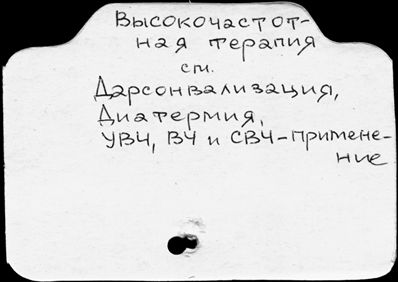 Высокочастот-
ная терапия
см.
Дарсонвализация,
Диатермия,
УВЧ, ВЧ и СВЧ-примене-
ние